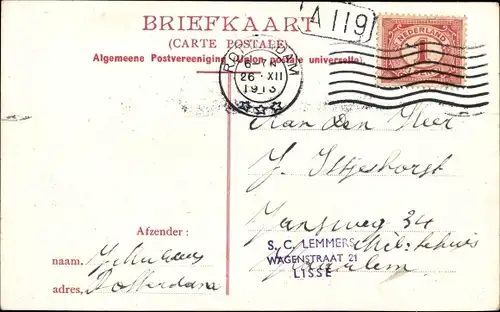 BRIEFKAART
A 119
(CARTE POSTALE)
Algemeene Postvereeniging (Union postale universelle)
ROTTERDAM
6-7N
26 XII
1913
NEDERLAND
1
Aan den Heer
J.
Jansweg 34
S. C. LEMMERS
WAGENSTRAAT 21
LISSE
Haarlem
Afzender :
naam.
adres, Rotterdam